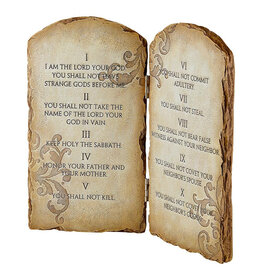 I
I AM THE LORD YOUR GOD
YOU SHALL NOT HAVE
STRANGE GODS BEFORE ME
II
YOU SHALL NOT TAKE THE
NAME OF THE LORD YOUR
GOD IN VAIN
III
KEEP HOLY THE SABBATH
IV
HONOR YOUR FATHER AND
YOUR MOTHER
V
YOU SHALL NOT KILL.
VI
YOU SHALL NOT COMMIT
ADULTERY.
VII
YOU SHALL NOT STEAL.
VIII
YOU SHALL NOT BEAR FALSE
WITNESS AGAINST YOUR
NEIGHBOR
IX
YOU SHALL NOT COVET YOUR
NEIGHBOR'S SPOUSE
X
YOU SHALL NOT COVET YOUR
NEIGHBOR'S GOODS